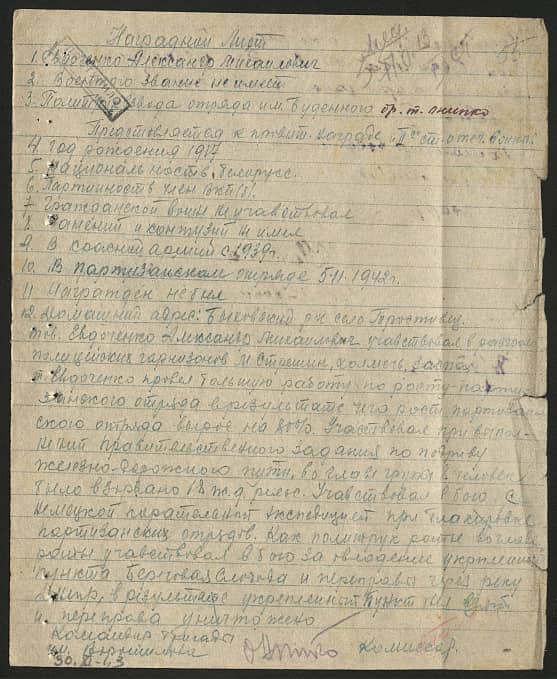 Наградний Лист
1. Евдоченко Александр Михаилович
2. Военного звание не имеет
3. взвода отряда им. Буденного
Предоставляется к правит. награде II ой ст. отеч. Воины.
4. год рождения 1917
5. Национальность, белорусс.
6. Партийность член ВКП(б).
7. Гражданской воин не учавствовал
8. Ранений и контузий не имел
9. В красний армий с 1939 г.
10. В партизанском отряде 5 II - 1942 г.
11. Награжден не был
12. Домашний адрес: село
тов. Евдоченко Александр Михаилович учавствовал в
полицейских гарнизонов М Стрешин, Холмечь,
т. Евдоченко провел большую работу по росту парти-
занского отряда в результате чего рост партизан
ского отряда вырос на 80%. Участвовал при выпол-
нений правительственного задания по подриву
железно-дорожного пути, во главе групи человек
было взорвано ж.д. рельс. Учавствовал в бою с
немецкой карательной экспедицией при блакировке
партизанских отрядов. Как политрук роты во главе
роты учавствовал в бою за овладение укреплен
пункта Береговая Слобода и переправы через реку
Днепр, в результате укрепленный пункт
и переправа уничтожено
Командир бригады
им. Ворошилова Комиссар.
30. XI - 43